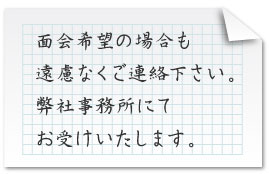 面会希望の場合も
遠慮なくご連絡下さい。
弊社事務所にて
お受けいたします。